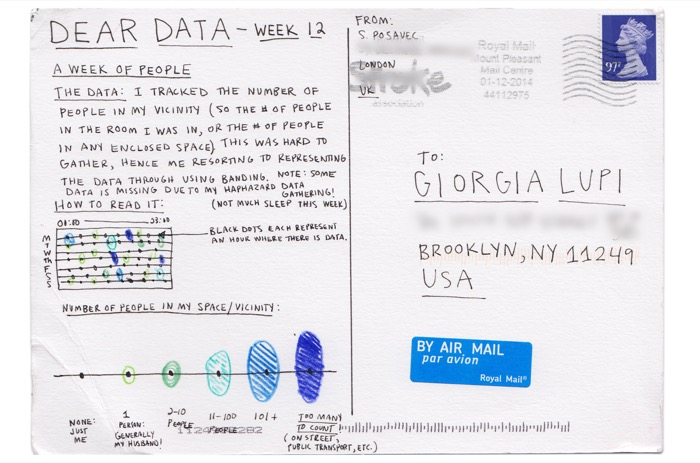 DEAR DATA – WEEK 12
A WEEK OF PEOPLE
THE DATA: I TRACKED THE NUMBER OF
PEOPLE IN MY VICINITY (SO THE # OF PEOPLE
IN THE ROOM I WAS IN, OR THE # OF PEOPLE
IN ANY ENCLOSED SPACE) THIS WAS HARD TO
GATHER, HENCE ME RESORTING TO REPRESENTING
THE DATA THROUGH USING BANDING. NOTE: SOME
DATA IS MISSING DUE TO MY HAPHAZARD DATA
GATHERING!
(NOT MUCH SLEEP THIS WEEK)
HOW TO READ IT:
M
T
W
TH
F
S
S
BLACK DOTS EACH REPRESENT
AN HOUR WHERE THERE IS DATA.
NUMBER OF PEOPLE IN MY SPACE/VICINITY:
NONE:
JUST
ME
1
PERSON:
GENERALLY
MY HUSBAND!
2-10
PEOPLE
11-100
PEOPLE
101+
TOO MANY
TO COUNT
(ON STREET,
PUBLIC TRANSPORT, ETC.)
FROM:
S. POSAVEC
LONDON
UK
Royal Mail
Mount Pleasant
Mail Centre
01-12-2014
44112975
Stroke
association
97P
TO:
GIORGIA LUPI
BROOKLYN, NY 11249
USA
BY AIR MAIL
par avion
Royal Mail®